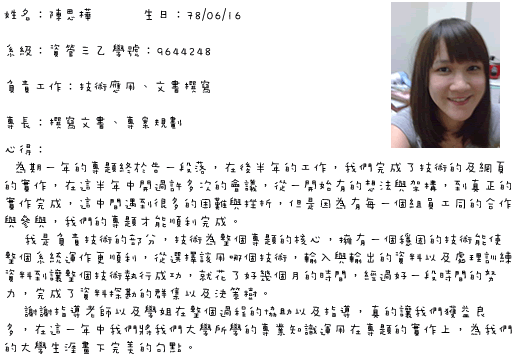 姓名：陳思樺　　　生日：78/06/16
系級：資管三乙 學號：9644248
負責工作：技術應用、文書撰寫
專長：撰寫文書、專案規劃
心得：
為期一年的專題終於告一段落，在後半年的工作，我們完成了技術的及網頁
的實作，在這半年中開過許多次的會議，從一開始有的想法與架構，到真正的
實作完成，這中間遇到很多的困難與挫折，但是因為有每一個組員工同的合作
與參與，我們的專題才能順利完成。
我是負責技術的部分，技術為整個專題的核心，擁有一個穩固的技術能使
整個系統運作更順利，從選擇該用哪個技術，輸入與輸出的資料以及處理訓練
資料到讓整個技術執行成功，就花了好幾個月的時間，經過好一段時間的努
力，完成了資料探勘的群集以及決策樹。
謝謝指導老師以及學姐在整個過程的協助以及指導，真的讓我們獲益良
多，在這一年中我們將我們大學所學的專業知識運用在專題的實作上，為我們
的大學生涯畫下完美的句點。